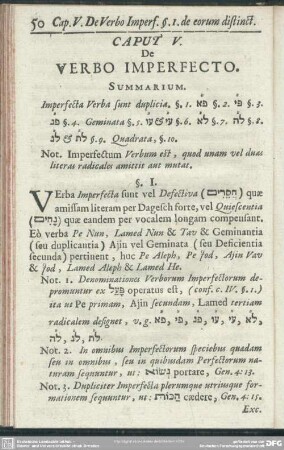 50 Cap. V. De Verbo Imperf. §. 1. de eorum distinct.
CAPUT V.
De
VERBO IMPERFECTO.
SUMMARIUM.
Imperfecta Verba sunt duplicia. §. 1. פא §. 2. פי §. 3.
פנ §. 4. Geminata §. 5. עו & עי §. 6. לא §. 7. לה §. 8.
לת & לנ §. 9. Quadrata, §. 10.
Not. Imperfectum Verbum est, quod unam vel duas
literas radicales amittit aut mutat.
§. I.
VErba Imperfecta sunt vel Defectiva (חסרים) quæ
amissam literam per Dagesch forte, vel Quiescentia
(נחים) quæ eandem per vocalem longam compensant.
Eò verba Pe Nun, Lamed Nun & Tav & Geminantia
(seu duplicantia) Ajin vel Geminata (seu Deficientia
secunda) pertinent, huc Pe Aleph, Pe Jod, Ajin Vav
& Jod, Lamed Aleph & Lamed He.
Not. 1. Denominationes Verborum Imperfectorum de-
promuntur ex פעל operatus est, (conf. c. IV. §. 1.)
ita ut Pe primam, Ajin secundam, Lamed tertiam
radicalem designet, v. g. פא, פי, פנ, עו, עי, לא,
לה, לנ, לת.
Not. 2. In omnibus Imperfectorum speciebus quædam
sen in omnibus, seu in quibusdam Perfectorum na-
turam sequuntur, ut: נשוא portare, Gen. 4: 13.
Not. 3. Dupliciter Imperfecta plerumque utriusque for-
mationem sequuntur, ut: הכות cædere, Gen. 4: 15.
Exc.